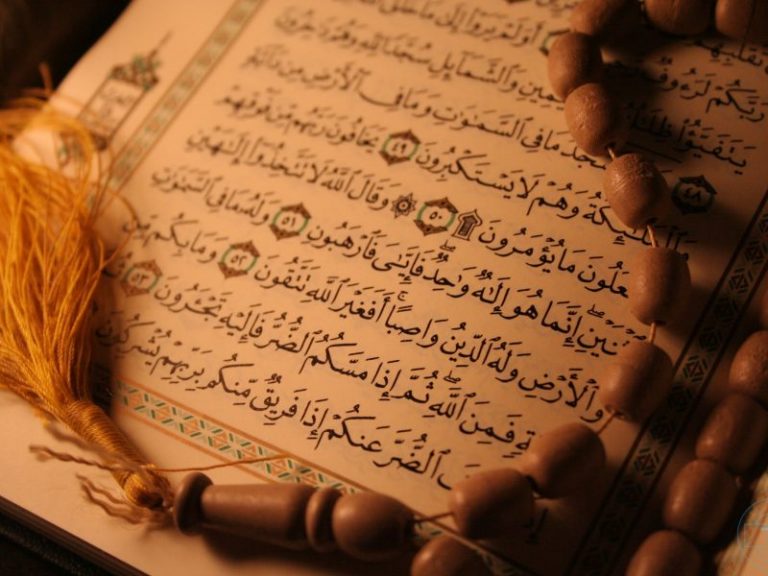 تَقَلُّبِهِمْ
رَبَّكُمْ لَرَءُوفٌ أَوَلَمْ يَرَوْا۟ إِلَىٰ مَا خَلَقَ
يَتَفَيَّؤُا۟ ظِلَٰلُهُۥ ٱلْيَمِينِ وَٱلشَّمَآئِلِ سُجَّدًا لِّلَّهِ وَهُمْ دَٰخِرُونَ
٤٨ يَسْجُدُ مَا فِى ٱلسَّمَٰوَٰتِ وَمَا فِى ٱلْأَرْضِ مِن دَآبَّةٍ
وَٱلْمَلَٰٓئِكَةُ وَهُمْ لَا يَسْتَكْبِرُونَ ٤٩ يَخَافُونَ رَبَّهُم مِّن فَوْقِهِمْ
وَيَفْعَلُونَ مَا يُؤْمَرُونَ ۩ ٥٠ ۞ وَقَالَ ٱللَّهُ لَا تَتَّخِذُوٓا۟ إِلَٰهَيْنِ
ٱثْنَيْنِ إِنَّمَا هُوَ إِلَٰهٌ وَٰحِدٌ فَإِيَّٰىَ فَٱرْهَبُونِ ٥١ وَلَهُۥ مَا فِى ٱلسَّمَٰوَٰتِ
وَٱلْأَرْضِ وَلَهُ ٱلدِّينُ وَاصِبًا أَفَغَيْرَ ٱللَّهِ تَتَّقُونَ ٥٢ وَمَا بِكُم مِّن
فَمِنَ ٱللَّهِ ثُمَّ إِذَا مَسَّكُمُ ٱلضُّرُّ فَإِلَيْهِ تَجْـَٔرُونَ ٥٣ ثُمَّ
ٱلضُّرَّ عَنكُمْ إِذَا فَرِيقٌ مِّنكُم بِرَبِّهِمْ يُشْرِكُونَ